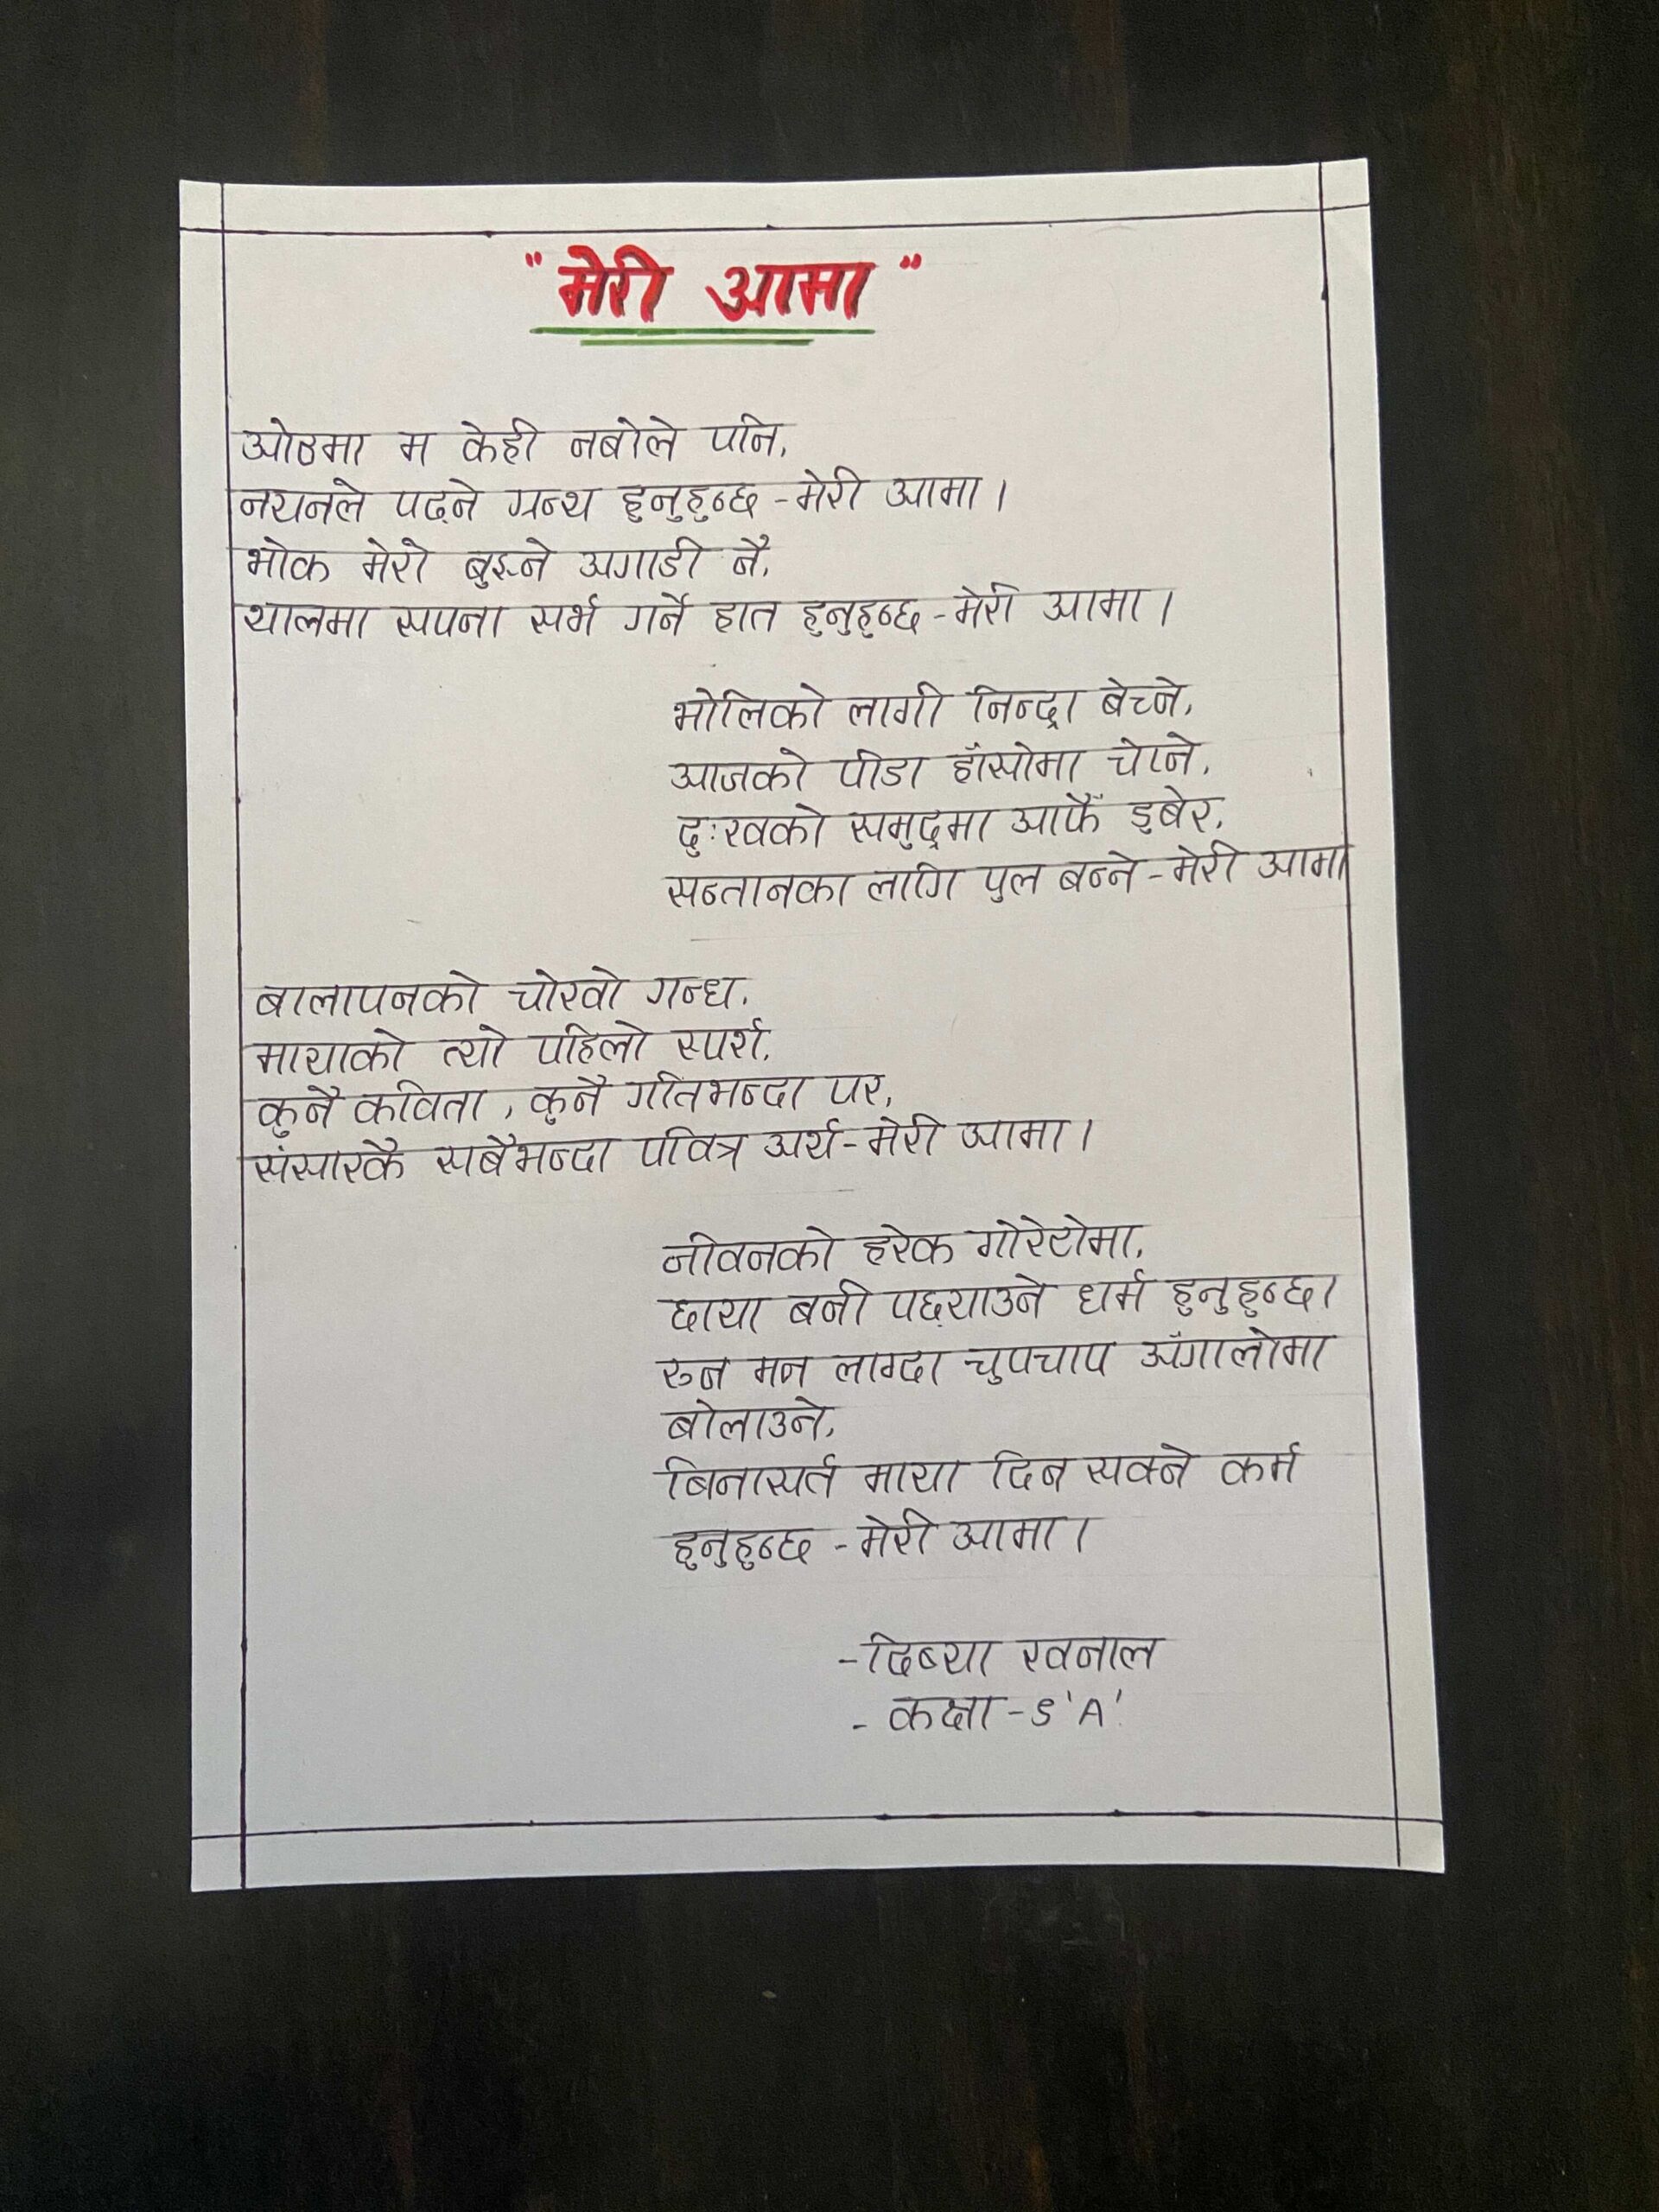 "मेरी आमा"
ओठमा म केही नबोले पनि,
नयनले पढ्ने ग्रन्थ हुनुहुन्छ -मेरी आमा।
भोक मेरो बुझ्ने अगाडी नै,
थालमा सपना सर्भ गर्ने हात हुनुहुन्छ -मेरी आमा।
भोलिको लागी निन्द्रा बेच्ने,
आजको पीडा हाँसोमा चेप्ने,
दुःखको समुद्रमा आफैँ डुबेर,
सन्तानका लागि पुल बन्ने -मेरी आमा
बालापनको चोखो गन्ध,
मायाको त्यो पहिलो स्पर्श,
कुनै कविता, कुनै गीतभन्दा पर,
संसारकै सबैभन्दा पवित्र अर्थ-मेरी आमा।
जीवनको हरेक गोरेटोमा,
छाया बनी पछ्याउने धर्म हुनुहुन्छ।
रुन मन लाग्दा चुपचाप अँगालोमा
बोलाउने,
बिनासर्त माया दिन सक्ने कर्म
हुनुहुन्छ -मेरी आमा।
-दिब्या खनाल
- कक्षा -S 'A'